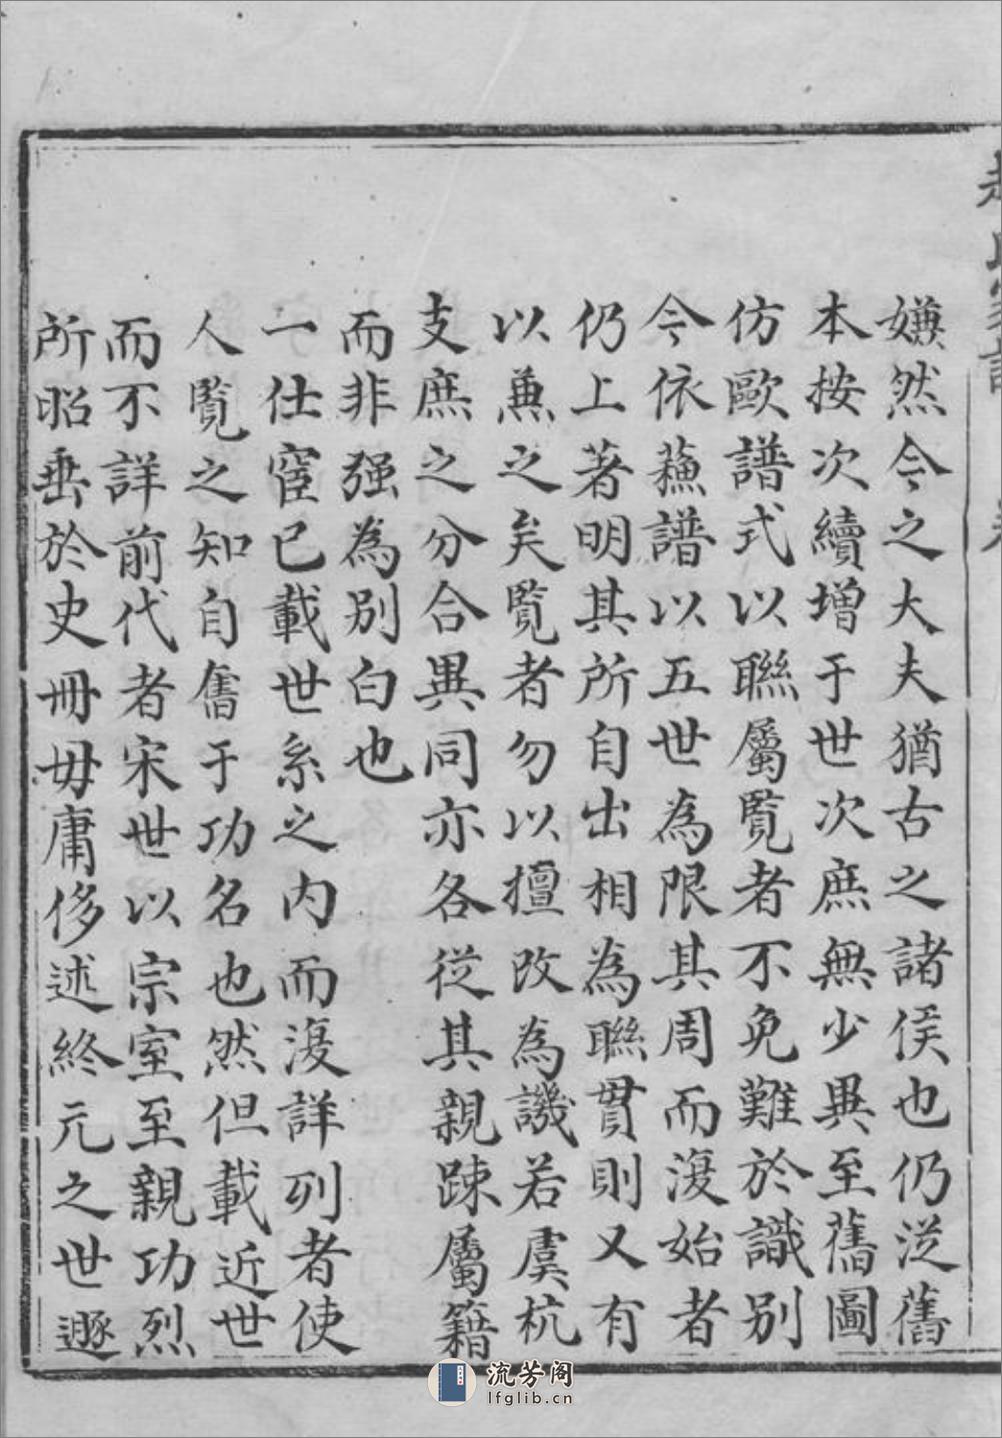 嫌然今之大夫猶古之諸侯也仍從舊
本按次續增于世次庶無少異至舊圖
仿歐譜式以聯屬覧者不免難於識別
今依蘓譜以五世為限其周而復始者
仍上著明其所自出相為聯貫則又有
以兼之矣覧者勿以擅改為譏若虞杭
支庶之分合異同亦各從其親踈屬籍
而非强為別白也
一仕宦已載世系之内而復詳列者使
人覧之知自奮于功名也然但載近世
而不詳前代者宋世以宗室至親功烈
所昭垂於史冊毋庸侈述終元之世遯
流芳阁
lfglib.cn